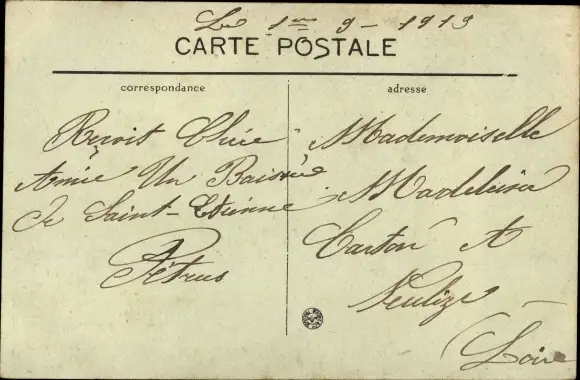 Le 1er 9 - 1913
CARTE POSTALE
correspondance
Reçoit Chère
Amie Un Baisée
de Saint-Etienne
Pétrus
adresse
Mademoiselle
Madeleine
Carton A
Neulize
(Loire